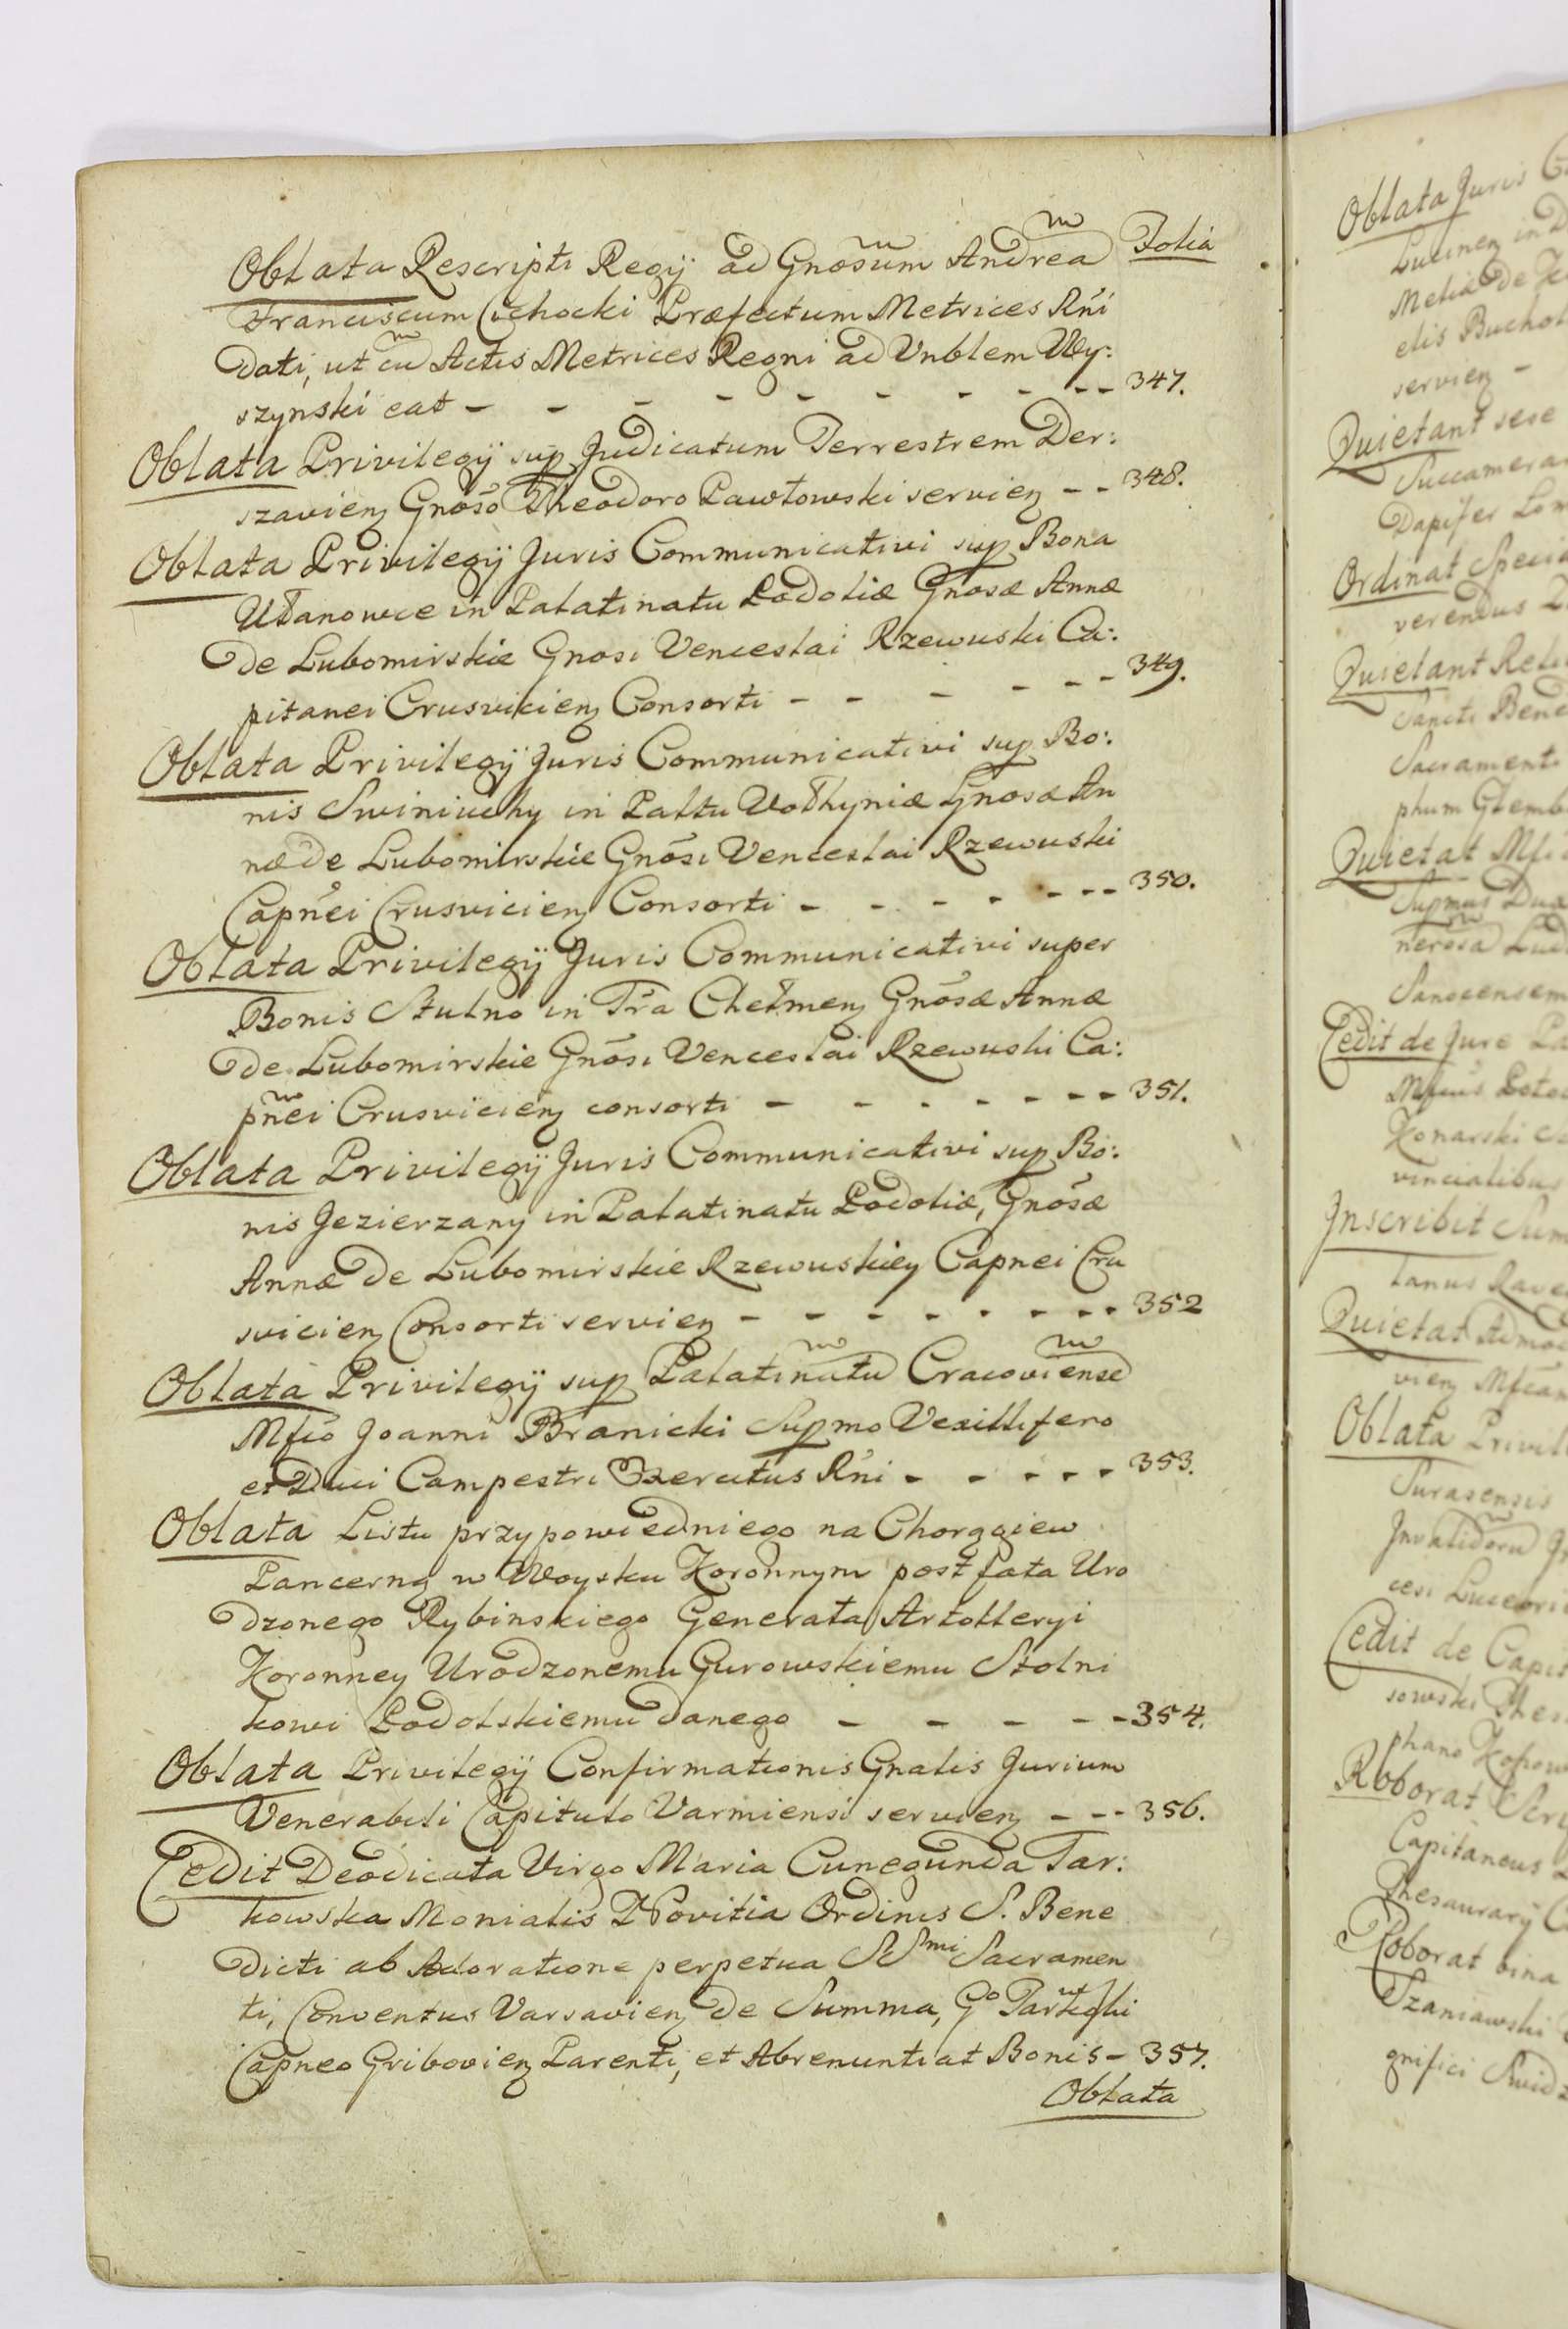 Folia
Oblata Rescripti Regij ad Gnosum Andrea
Franciscum Cichocki Præfectum Metrices Rni
dati, ut cu Actis Metrices Regni ad Vnblem Wy:
szynski eat - - - - - - - - - 347.
Oblata Privilegij sup Judicatum Terrestrem Der:
szavien Gnoso Theodoro Pawłowski servien - - 348.
Oblata Privilegij Juris Communicativi sup Bona
Ułanowce in Palatinatu Podoliæ Gnosæ Annæ
de Lubomirskie Gnosi Venceslai Rzewuski Ca:
pitanei Crusvicien Consorti - - - - - - 349.
Oblata Privilegij Juris Communicativi sup Bo:
nis Swiniuchy in Palttu Vołhyniæ Gnosæ An
næ de Lubomirskie Gnosi Venceslai Rzewuski
Capnei Crusvicien Consorti - - - - - - 350.
Oblata Privilegij Juris Communicativi super
Bonis Stulno in Tra Chełmen Gnosæ Annæ
de Lubomirskie Gnosi Venceslai Rzewuski Ca:
pnei Crusvicien consorti - - - - - - - 351.
Oblata Privilegij Juris Communicativi sup Bo:
nis Jezierzany in Palatinatu Podoliæ, Gnosæ
Annæ de Lubomirskie Rzewuskiey Capnei Cru
svicien Consorti servien - - - - - - - - 352
Oblata Privilegij sup Palatinatu Cracoviense
Mfco Joanni Branicki Supmo Vexillifero
et Duci Campestri Exercitus Rni - - - - - 353.
Oblata Listu przypowiedniego na Chorągiew
Pancerną w Woysku Koronnym post fata Uro
dzonego Rybinskiego Generała Artolleryi
Koronney Urodzonemu Gurowskiemu Stolni
kowi Podolskiemu danego - - - - - 354.
Oblata Privilegij Confirmationis Gnalis Jurium
Venerabili Capitulo Varmiensi servien - - - 356.
Cedit Deodicata Virgo Maria Cunegunda Tar:
kowska Monialis Novitia Ordinis S. Bene
dicti ab Adoratione perpetua SSmi Sacramen
ti, Conventus Varsavien de Summa, Go
Capneo Gribovien Parenti, et Abrenuntiat Bonis - 357.
Oblata
Oblata Juris
Quietant sese
Dapifer
Ordinat
verendus
Quietant
Sacramenti
phum
Quietat
Supmus Dux
Sanocensem
Cedit de Jure
Konarski
vincialibus
Inscribit
Quietat
Oblata
Surasensis
Cedit de
Roborat
Capitaneus
Thesaurarij
Roborat bina
Szaniawski
gnifici